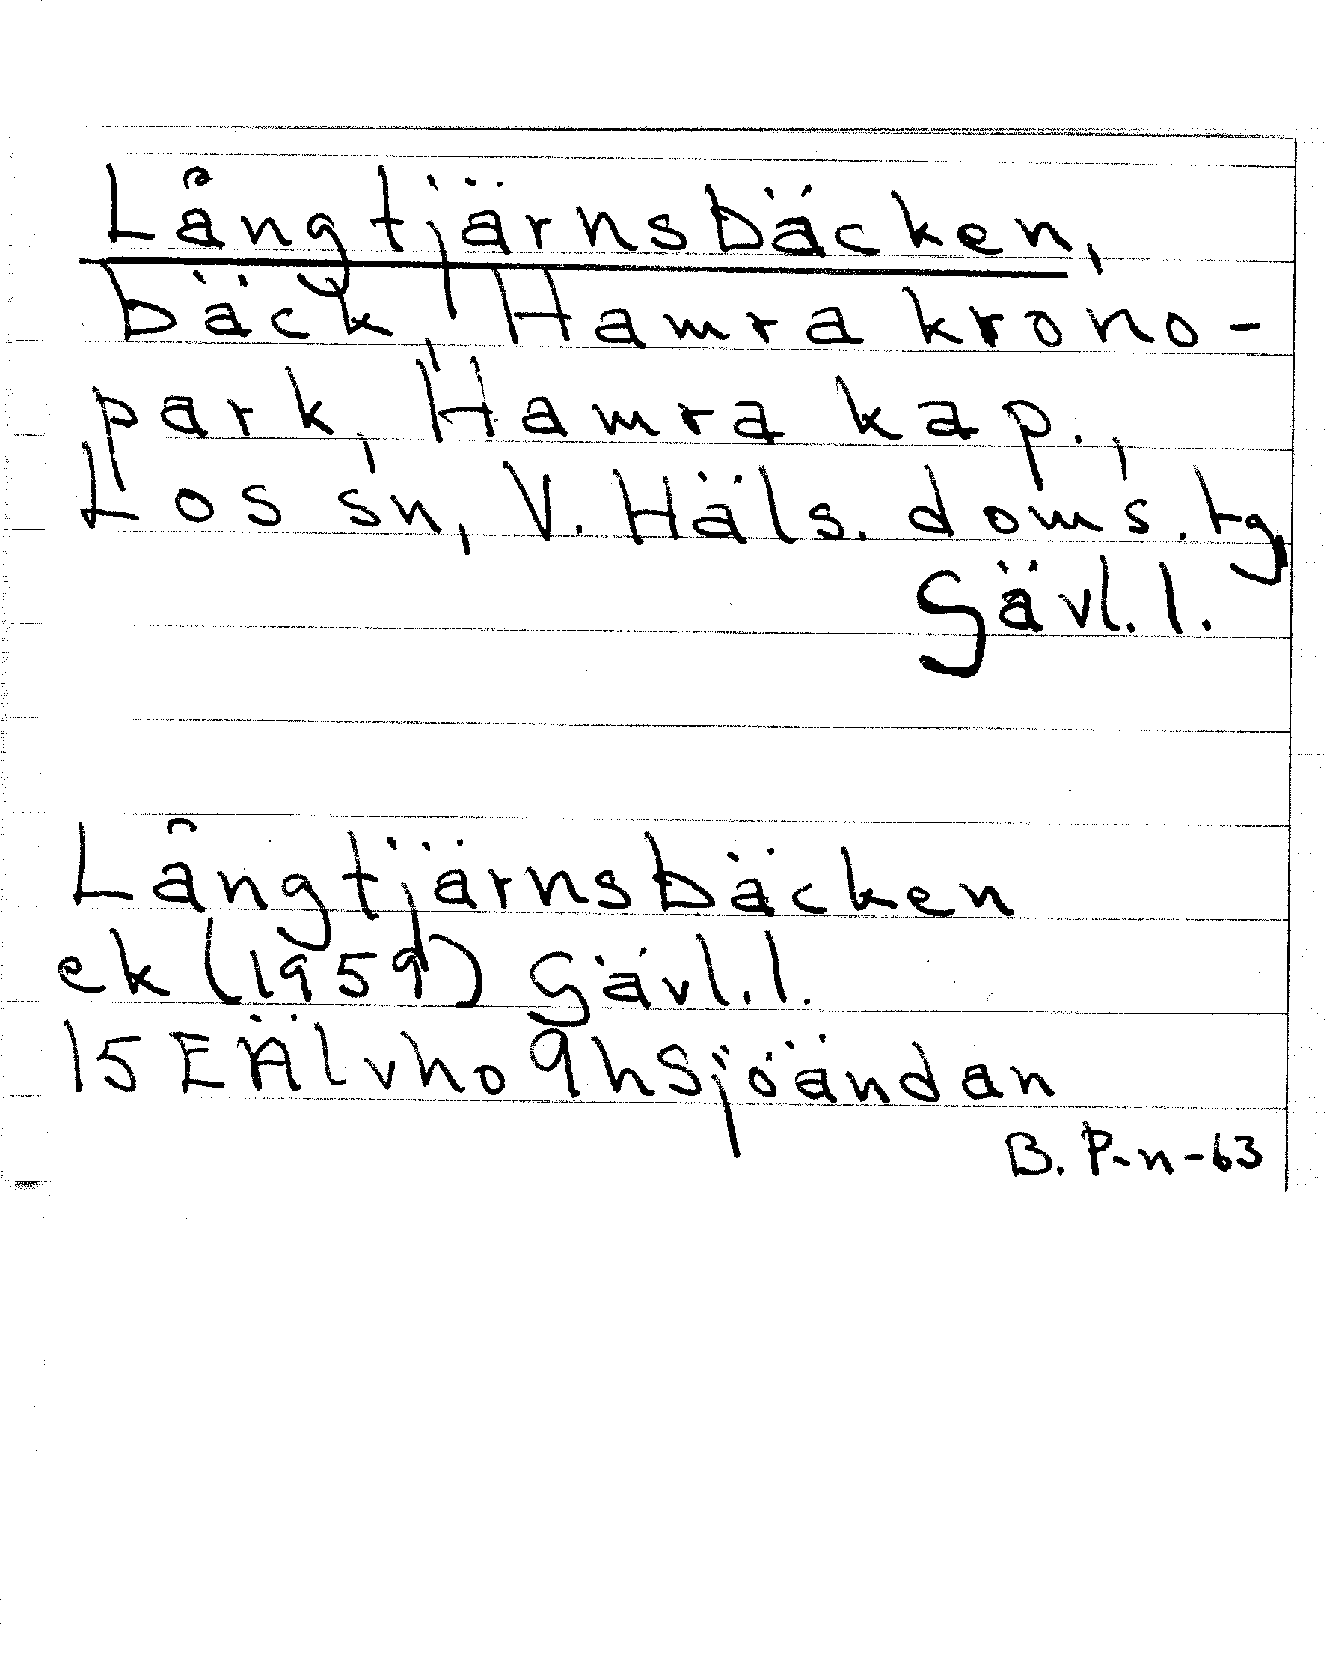 Långtjärnsbäcken,
bäck, Hamra krono-
park, Hamra kap.,
Los sn, V. Häls. doms. tg
Gävl. l.
Långtjärnsbäcken
ek (1959) Gävl. l.
15EÄlvho9hSjöändan
B. P-n-63